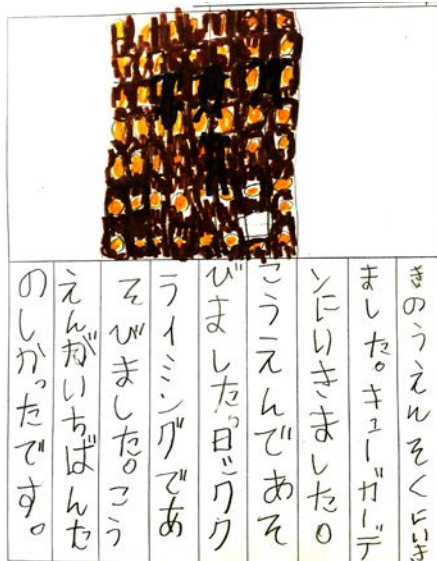 きのうえんそくにいき
ました。キューガーデ
ンにいきました。
こうえんであそ
びました。ロックク
ライミングであ
そびました。こう
えんがいちばんた
のしかったです。